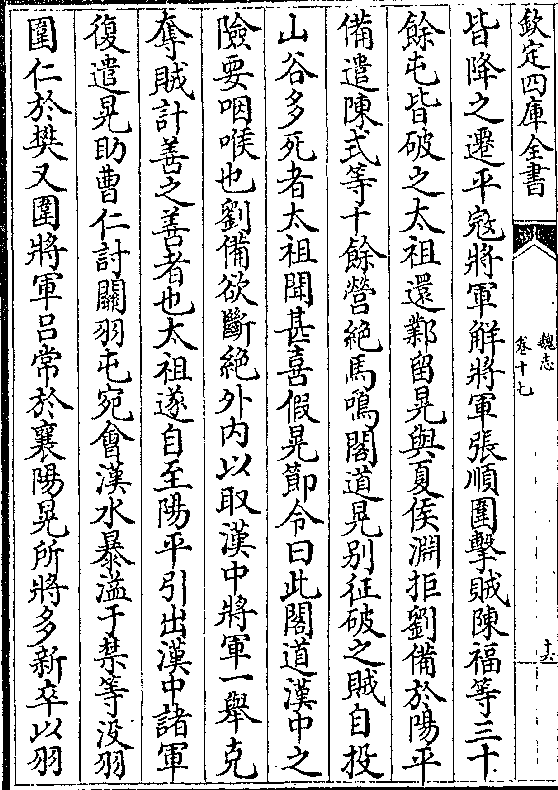 欽定四庫全書
魏志
卷十七
十二
皆降之遷平寇將軍解將軍張順圍擊賊陳福等三十
餘屯皆破之太祖還鄴留晃與夏侯淵拒劉備於陽平
備遣陳式等十餘營絶馬鳴閣道晃别征破之賊自投
山谷多死者太祖聞甚喜假晃節令曰此閣道漢中之
險要咽喉也劉備欲斷絶外内以取漢中將軍一舉克
奪賊計善之善者也太祖遂自至陽平引出漢中諸軍
復遣晃助曹仁討關羽屯宛會漢水暴溢于禁等沒羽
圍仁於樊又圍將軍吕常於襄陽晃所將多新卒以羽